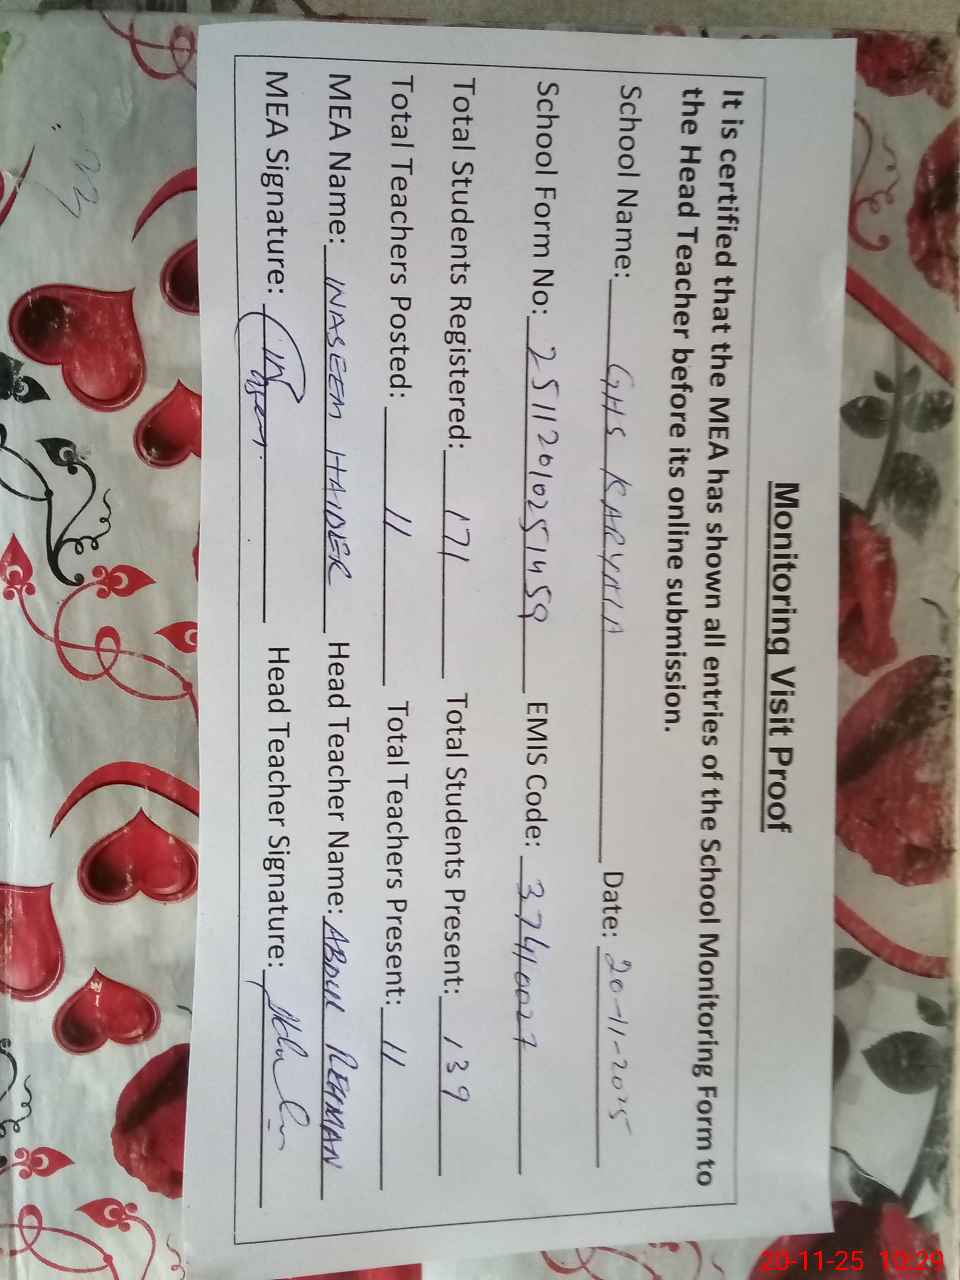 Monitoring Visit Proof
It is certified that the MEA has shown all entries of the School Monitoring Form to
the Head Teacher before its online submission.
School Name: GHS KARYALA Date: 20-11-2025
School Form No: 25112010251459 EMIS Code: 37410027
Total Students Registered: 171 Total Students Present: 139
Total Teachers Posted: 11 Total Teachers Present: 11
MEA Name: WASEEM HAIDER Head Teacher Name: ABDUL REHMAN
MEA Signature: Head Teacher Signature:
20-11-25 10:29